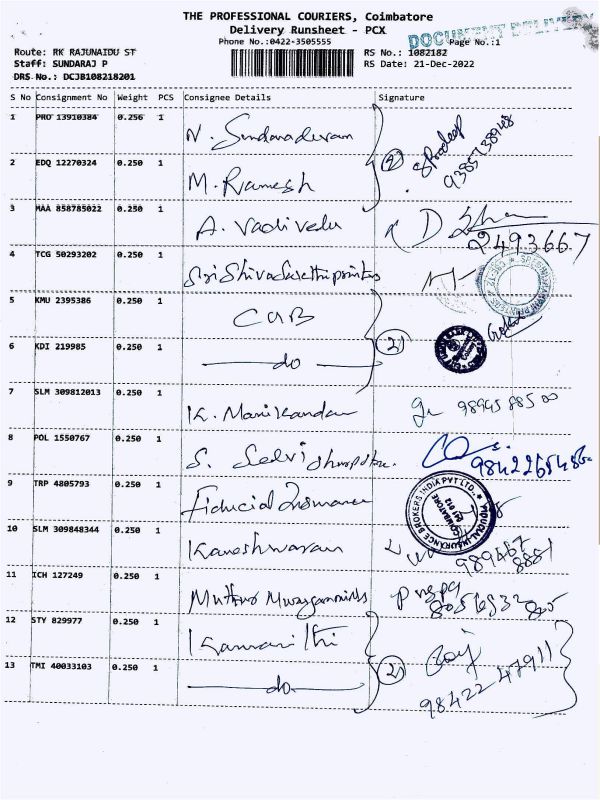 THE PROFESSIONAL COURIERS, Coimbatore
Delivery Runsheet - PCX
DOCUMENT DELIVERY
Phone No.:0422-3505555
Page No.:1
Route: RK RAJUNAIDU ST
RS No.: 1082182
Staff: SUNDARAJ P
RS Date: 21-Dec-2022
DRS No.: DCJB108218201
S No Consignment No Weight PCS Consignee Details Signature
1 PRO 13910384 0.250 1 N. Sundaradevam
2 EDQ 12270324 0.250 1 M. Ramesh (2) Pradeep
3 MAA 858785022 0.250 1 A. Vadivelu 2493667
4 TCG 50293202 0.250 1
5 KMU 2395386 0.250 1 CUB
6 KDI 219985 0.250 1 do (2)
7 SLM 309812013 0.250 1 K. Manikandan
8 POL 1550767 0.250 1 S. Selvi
9 TRP 4805793 0.250 1 Fiducial Insurance
FIDUCIAL INSURANCE BROKERS INDIA PVT LTD., COIMBATORE 641 012
10 SLM 309848344 0.250 1 Kaneshwaran
11 ICH 127249 0.250 1
12 STY 829977 0.250 1
13 TMI 40033103 0.250 1 do (2) 98422 47911